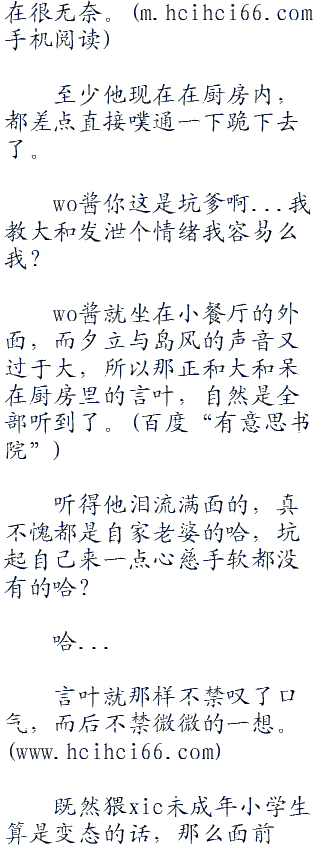 在很无奈。(m.hcihci66.com
手机阅读)
至少他现在在厨房内，
都差点直接噗通一下跪下去
了。
wo酱你这是坑爹啊...我
教大和发泄个情绪我容易么
我？
wo酱就坐在小餐厅的外
面，而夕立与岛风的声音又
过于大，所以那正和大和呆
在厨房里的言叶，自然是全
部听到了。(百度“有意思书
院”)
听得他泪流满面的，真
不愧都是自家老婆的哈，坑
起自己来一点心慈手软都没
有的哈？
哈...
言叶就那样不禁叹了口
气，而后不禁微微的一想。
(www.hcihci66.com)
既然猥xie未成年小学生
算是变态的话，那么面前